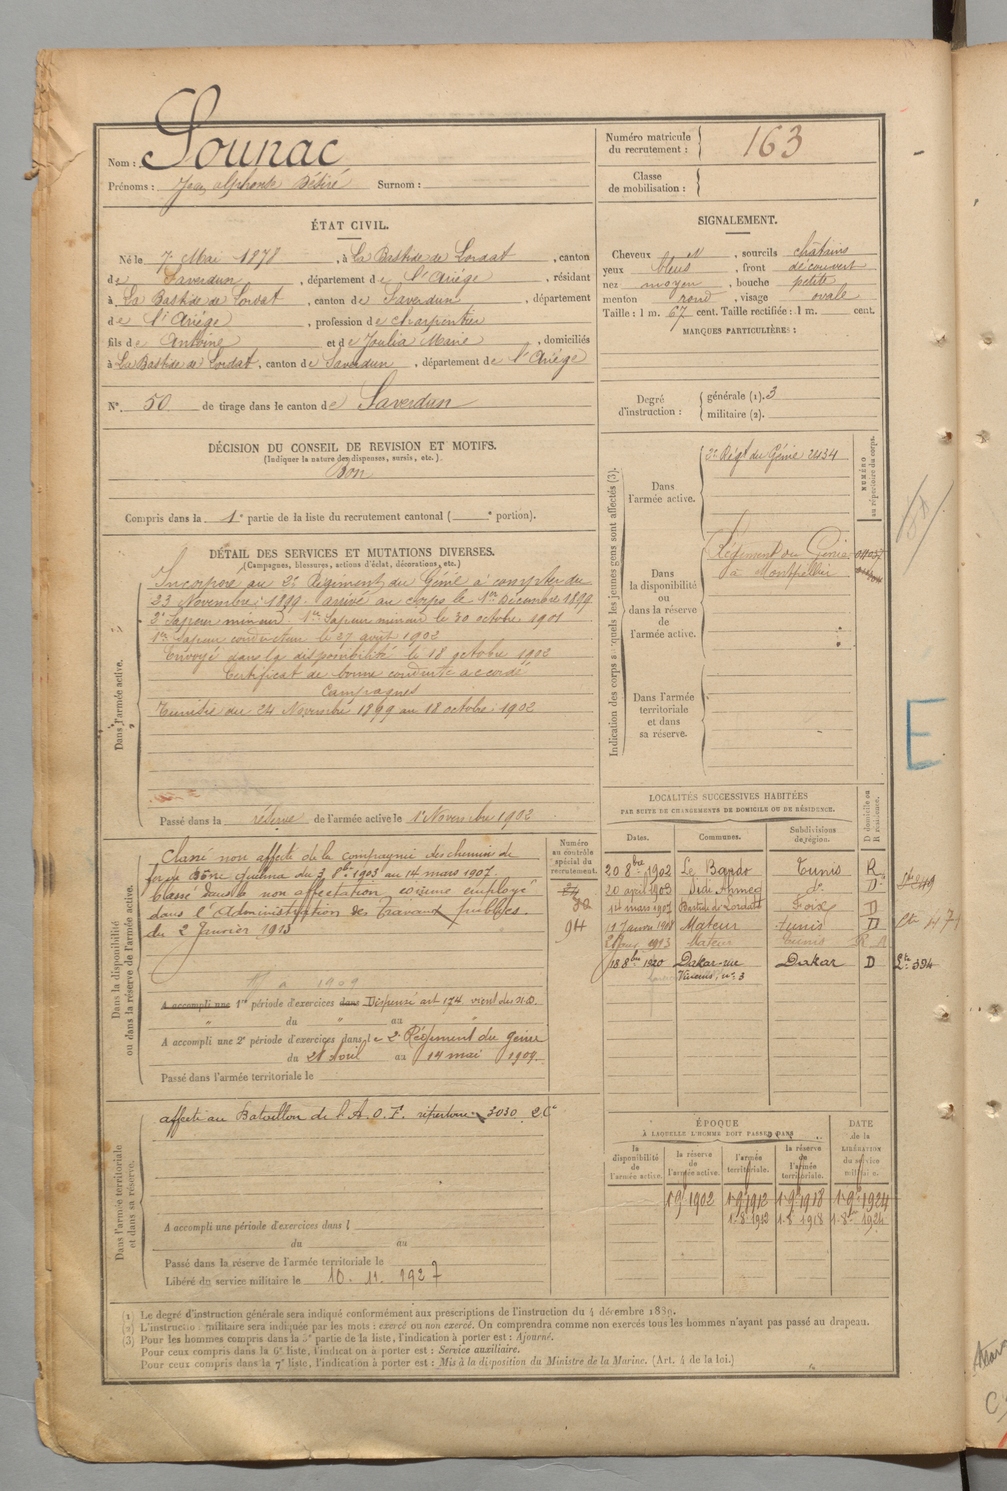 Nom : Sounac
Prénoms : Jean alphonse Désiré Surnom :
ÉTAT CIVIL.
Né le 7 Mai 1878, à La Bastide de Lordat, canton
de Saverdun, département de l'Ariége, résidant
à La Bastide de Lordat, canton de Saverdun, département
de l'Ariége, profession de charpentier
fils de Antoine et de Joulia Marie, domiciliés
à La Bastide de Lordat, canton de Saverdun, département de l'Ariége
N° 50 de tirage dans le canton de Saverdun
DÉCISION DU CONSEIL DE REVISION ET MOTIFS.
(Indiquer la nature des dispenses, sursis, etc.)
Bon
Compris dans la 1e partie de la liste du recrutement cantonal ( e portion).
DÉTAIL DES SERVICES ET MUTATIONS DIVERSES.
(Campagnes, blessures, actions d'éclat, décorations, etc.)
Dans l'armée active.
Incorporé au 2e Régiment du Génie à compter du
23 Novembre 1899. arrivé au corps le 1er Décembre 1899
2e Sapeur mineur. 1er Sapeur mineur le 20 octobre 1901
1er Sapeur conducteur le 27 août 1902
Envoyé dans la disponibilité le 18 octobre 1902
Certificat de bonne conduite accordé
Campagnes
Tunisie du 24 Novembre 1899 au 18 octobre 1902
Passé dans la réserve de l'armée active le 1 Novembre 1902
Dans la disponibilité
ou dans la réserve de l'armée active.
Numéro
au contrôle
spécial du
recrutement.
Classé non affecté de la compagnie des chemins de
fer de Bône Guelma du 3 8bre 1903 au 14 mars 1907.
Classé dans la non affectation, comme employé
dans l'Administration des Travaux publics.
du 2 Janvier 1913
94
1909
A accompli une 1re période d'exercices dans Dispensé art 174
du " au "
A accompli une 2e période d'exercices dans le 2e Régiment du Génie
du 28 avril au 14 mai 1909.
Passé dans l'armée territoriale le
Dans l'armée territoriale
et dans sa réserve.
affecté au Bataillon de l'A.O.F. répertoire 3030
A accompli une période d'exercices dans l
du au
Passé dans la réserve de l'armée territoriale le
Libéré du service militaire le 10. 11. 1927
Numéro matricule
du recrutement : 163
Classe
de mobilisation :
SIGNALEMENT.
Cheveux et, sourcils châtains
yeux bleus, front découvert
nez moyen, bouche petite
menton rond, visage ovale
Taille : 1 m. 67 cent. Taille rectifiée : 1 m. cent.
MARQUES PARTICULIÈRES :
Degré
d'instruction :
générale (1). 3
militaire (2).
Indication des corps auxquels les jeunes gens sont affectés (3).
NUMÉRO
au répertoire du corps.
Dans
l'armée active.
2e Régt du Génie 2434
Dans
la disponibilité
ou
dans la réserve
de
l'armée active.
Régiment du Génie
à Montpellier
Dans l'armée
territoriale
et dans
sa réserve.
E
LOCALITÉS SUCCESSIVES HABITÉES
PAR SUITE DE CHANGEMENTS DE DOMICILE OU DE RÉSIDENCE.
D domicile ou
R résidence.
Dates. Communes. Subdivisions
de région.
20 8bre 1902 Le Bardo Tunis R
20 avril 1903 Sidi Ahmed do D
14 mars 1907 Bastide de Lordat Foix D
1918 Mateur Tunis D
1913 Mateur Tunis R
18 8bre 1920 Dakar-rue Dakar D
Vincens, n° 3
ÉPOQUE
À LAQUELLE L'HOMME DOIT PASSER DANS
DATE
de la
LIBÉRATION
du service
militaire.
la
disponibilité
de
l'armée active.
la réserve
de
l'armée active.
l'armée
territoriale.
la réserve
de
l'armée
territoriale.
1 9 1902 1 9 1912 1 9 1918 1 9 1924
1 8 1912 1 8 1918 1 8 1924
(1) Le degré d'instruction générale sera indiqué conformément aux prescriptions de l'instruction du 4 décembre 1889.
(2) L'instruction militaire sera indiquée par les mots : exercé ou non exercé. On comprendra comme non exercés tous les hommes n'ayant pas passé au drapeau.
(3) Pour les hommes compris dans la 5e partie de la liste, l'indication à porter est : Ajourné.
Pour ceux compris dans la 6e liste, l'indication à porter est : Service auxiliaire.
Pour ceux compris dans la 7e liste, l'indication à porter est : Mis à la disposition du Ministre de la Marine. (Art. 4 de la loi.)